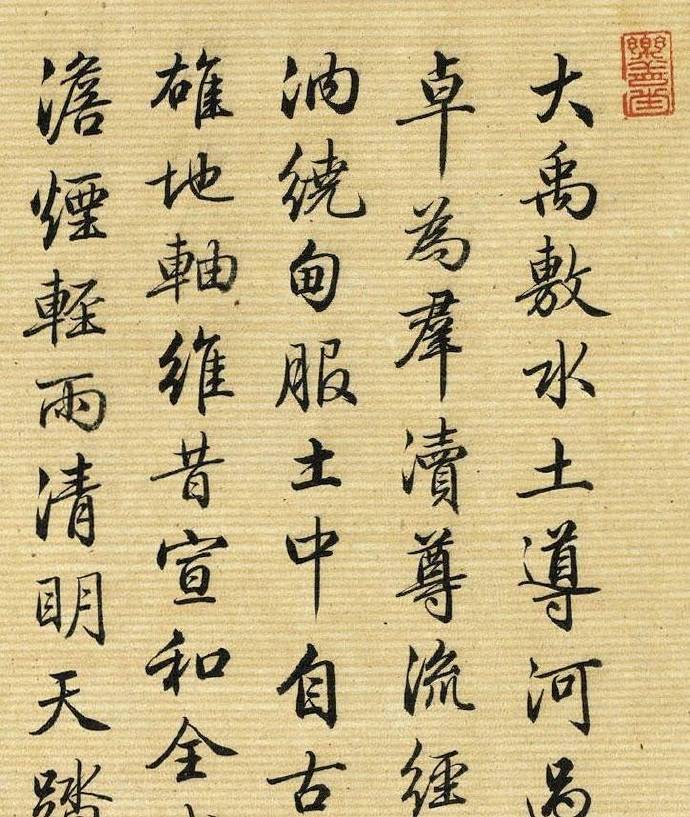 大禹敷水土導河
卓為羣瀆尊流經
汭繞甸服土中自古
雄地軸維昔宣和全
澹煙輕雨清明天踏